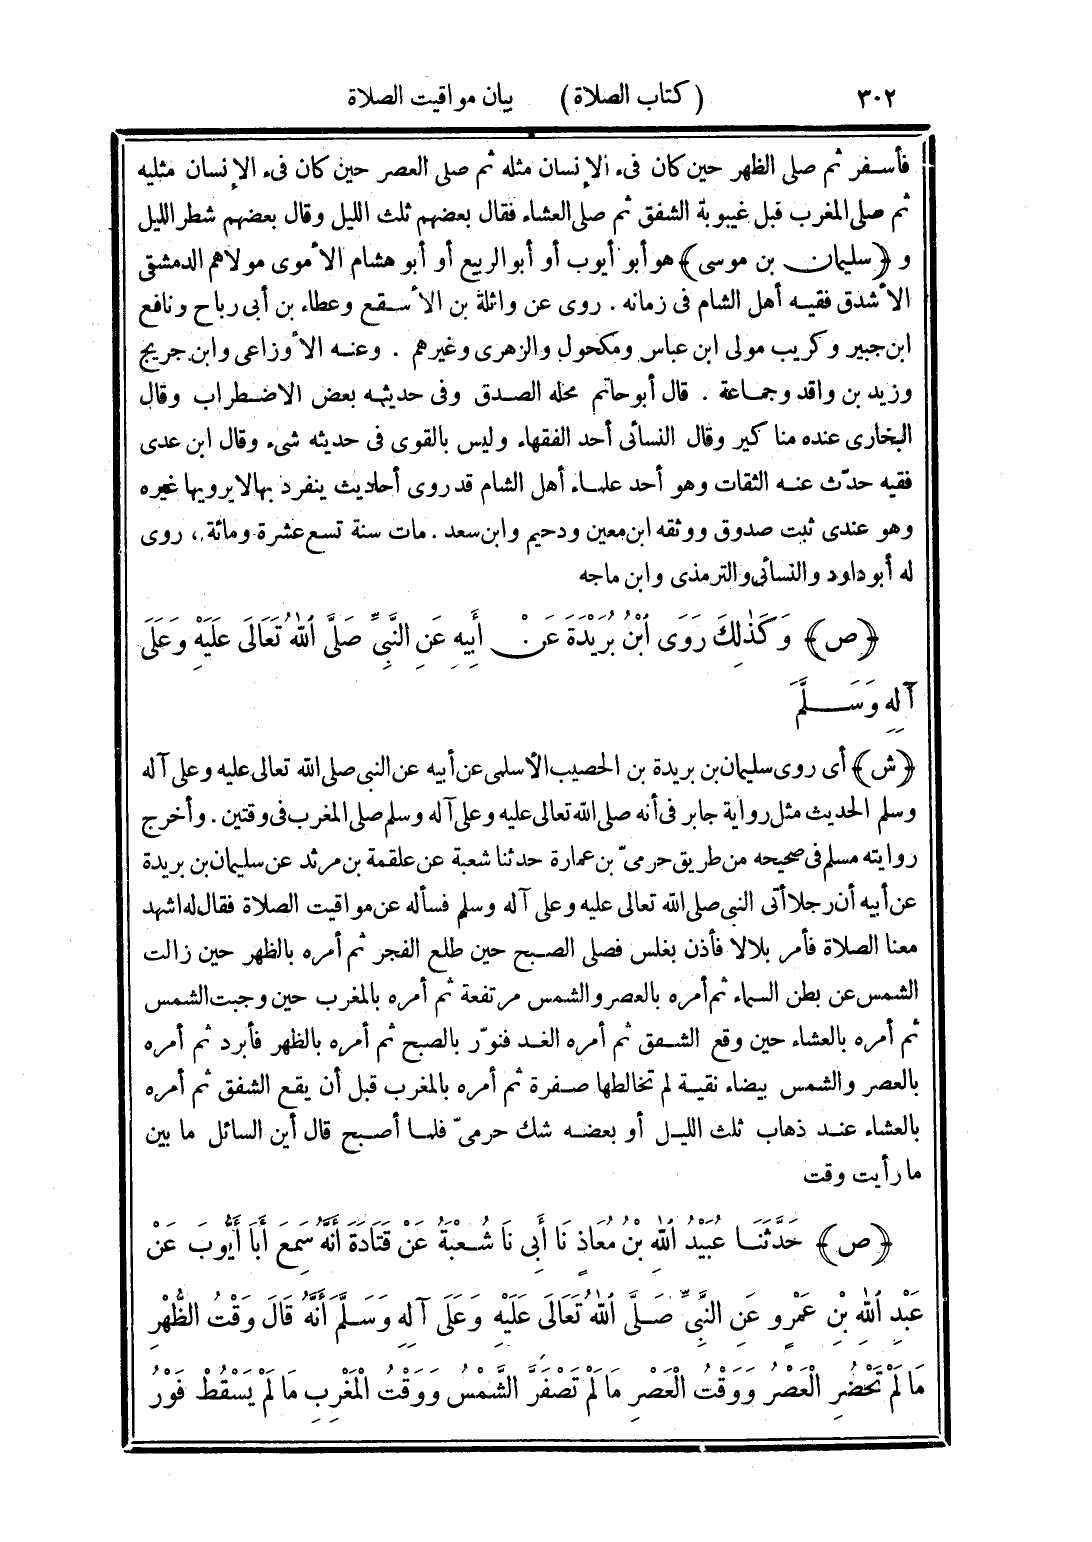 ٣٠٢ (كتاب الصلاة) بيان مواقيت الصلاة
فأسفر ثم صلى الظهر حين كان فىء الإنسان مثله ثم صلى العصر حين كان فىء الإنسان مثليه
ثم صلى المغرب قبل غيبوبة الشفق ثم صلى العشاء فقال بعضهم ثلث الليل وقال بعضهم شطر الليل
و ﴿سليمان بن موسى﴾ هو أبو أيوب أو أبو الربيع أو أبو هشام الأموى مولاهم الدمشقى
الأشدق فقيه أهل الشام فى زمانه . روى عن واثلة بن الأسقع وعطاء بن أبى رباح ونافع
ابن جبير وكريب مولى ابن عباس ومكحول والزهرى وغيرهم . وعنه الأوزاعى وابن جريج
وزيد بن واقد وجماعة . قال أبو حاتم محله الصدق وفى حديثه بعض الاضطراب وقال
البخارى عنده مناكير وقال النسائى أحد الفقهاء وليس بالقوى فى حديثه شىء وقال ابن عدى
فقيه حدّث عنه الثقات وهو أحد علماء أهل الشام قد روى أحاديث ينفرد بها لا يرويها غيره
وهو عندى ثبت صدوق ووثقه ابن معين ودحيم وابن سعد . مات سنة تسع عشرة ومائة، روى
له أبو داود والنسائى والترمذى وابن ماجه
﴿ص﴾ وَكَذٰلِكَ رَوَى ابْنُ بُرَيْدَةَ عَنْ أَبِيهِ عَنِ النَّبِيِّ صَلَّى اللهُ تَعَالَى عَلَيْهِ وَعَلَى
آلِهِ وَسَلَّمَ
﴿ش﴾ أى روى سليمان بن بريدة بن الحصيب الأسلمى عن أبيه عن النبى صلى الله تعالى عليه وعلى آله
وسلم الحديث مثل رواية جابر فى أنه صلى الله تعالى عليه وعلى آله وسلم صلى المغرب فى وقتين . وأخرج
روايته مسلم فى صحيحه من طريق حرمىّ بن عمارة حدثنا شعبة عن علقمة بن مرثد عن سليمان بن بريدة
عن أبيه أن رجلا أتى النبى صلى الله تعالى عليه وعلى آله وسلم فسأله عن مواقيت الصلاة فقال له اشهد
معنا الصلاة فأمر بلالا فأذن بغلس فصلى الصبح حين طلع الفجر ثم أمره بالظهر حين زالت
الشمس عن بطن السماء ثم أمره بالعصر والشمس مرتفعة ثم أمره بالمغرب حين وجبت الشمس
ثم أمره بالعشاء حين وقع الشفق ثم أمره الغد فنوّر بالصبح ثم أمره بالظهر فأبرد ثم أمره
بالعصر والشمس بيضاء نقية لم تخالطها صفرة ثم أمره بالمغرب قبل أن يقع الشفق ثم أمره
بالعشاء عند ذهاب ثلث الليل أو بعضه شك حرمىّ فلما أصبح قال أين السائل ما بين
ما رأيت وقت
﴿ص﴾ حَدَّثَنَا عُبَيْدُ اللهِ بْنُ مُعَاذٍ نَا أَبِي نَا شُعْبَةُ عَنْ قَتَادَةَ أَنَّهُ سَمِعَ أَبَا أَيُّوبَ عَنْ
عَبْدِ اللهِ بْنِ عَمْرٍو عَنِ النَّبِيِّ صَلَّى اللهُ تَعَالَى عَلَيْهِ وَعَلَى آلِهِ وَسَلَّمَ أَنَّهُ قَالَ وَقْتُ الظُّهْرِ
مَا لَمْ تَحْضُرِ الْعَصْرُ وَوَقْتُ الْعَصْرِ مَا لَمْ تَصْفَرَّ الشَّمْسُ وَوَقْتُ الْمَغْرِبِ مَا لَمْ يَسْقُطْ فَوْرُ